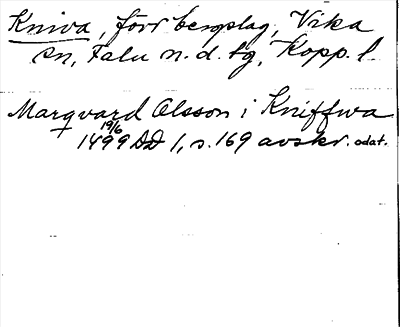 Kniva, förr bergslag, Vika
sn, Falu n. d. tg, Kopp. l.
Marqvard Olsson i Kniffwa
19/6
1499 DD 1, s. 169 avskr. odat.